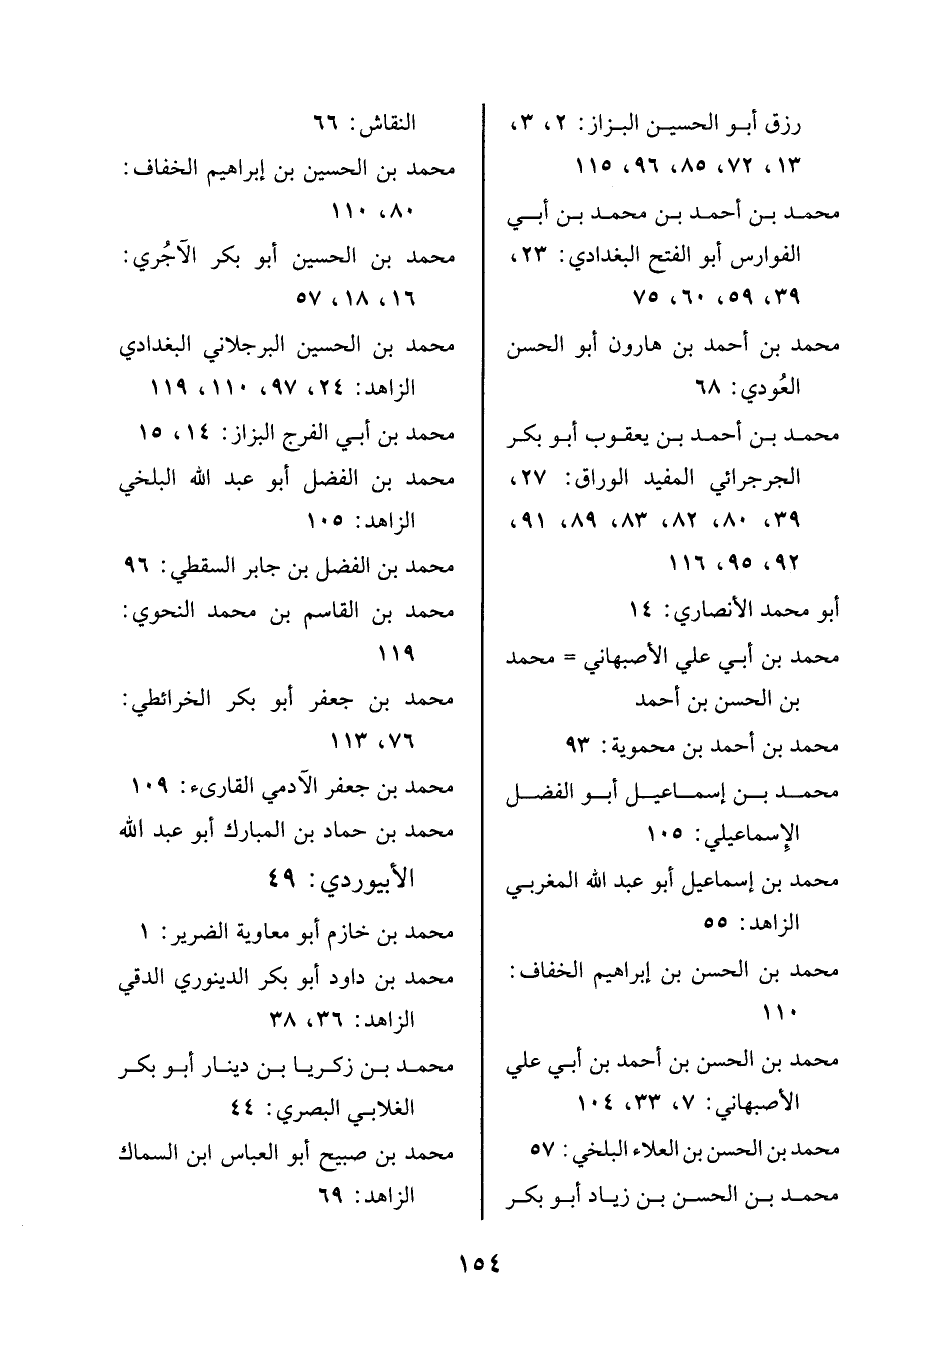 رزق أبو الحسين البزاز: ٢، ٣،
١٣، ٧٢، ٨٥، ٩٦، ١١٥
محمد بن أحمد بن محمد بن أبي
الفوارس أبو الفتح البغدادي: ٢٣،
٣٩، ٥٩، ٦٠، ٧٥
محمد بن أحمد بن هارون أبو الحسن
العُودي: ٦٨
محمد بن أحمد بن يعقوب أبو بكر
الجرجرائي المفيد الوراق: ٢٧،
٣٩، ٨٠، ٨٢، ٨٣، ٨٩، ٩١،
٩٢، ٩٥، ١١٦
أبو محمد الأنصاري: ١٤
محمد بن أبي علي الأصبهاني = محمد
بن الحسن بن أحمد
محمد بن أحمد بن محموية: ٩٣
محمد بن إسماعيل أبو الفضل
الإسماعيلي: ١٠٥
محمد بن إسماعيل أبو عبد الله المغربي
الزاهد: ٥٥
محمد بن الحسن بن إبراهيم الخفاف:
١١٠
محمد بن الحسن بن أحمد بن أبي علي
الأصبهاني: ٧، ٣٣، ١٠٤
محمد بن الحسن بن العلاء البلخي: ٥٧
محمد بن الحسن بن زياد أبو بكر
النقاش: ٦٦
محمد بن الحسين بن إبراهيم الخفاف:
٨٠، ١١٠
محمد بن الحسين أبو بكر الآجُري:
١٦، ١٨، ٥٧
محمد بن الحسين البرجلاني البغدادي
الزاهد: ٢٤، ٩٧، ١١٠، ١١٩
محمد بن أبي الفرج البزاز: ١٤، ١٥
محمد بن الفضل أبو عبد الله البلخي
الزاهد: ١٠٥
محمد بن الفضل بن جابر السقطي: ٩٦
محمد بن القاسم بن محمد النحوي:
١١٩
محمد بن جعفر أبو بكر الخرائطي:
٧٦، ١١٣
محمد بن جعفر الآدمي القارىء: ١٠٩
محمد بن حماد بن المبارك أبو عبد الله
الأبيوردي: ٤٩
محمد بن خازم أبو معاوية الضرير: ١
محمد بن داود أبو بكر الدينوري الدقي
الزاهد: ٣٦، ٣٨
محمد بن زكريا بن دينار أبو بكر
الغلابي البصري: ٤٤
محمد بن صبيح أبو العباس ابن السماك
الزاهد: ٦٩
١٥٤